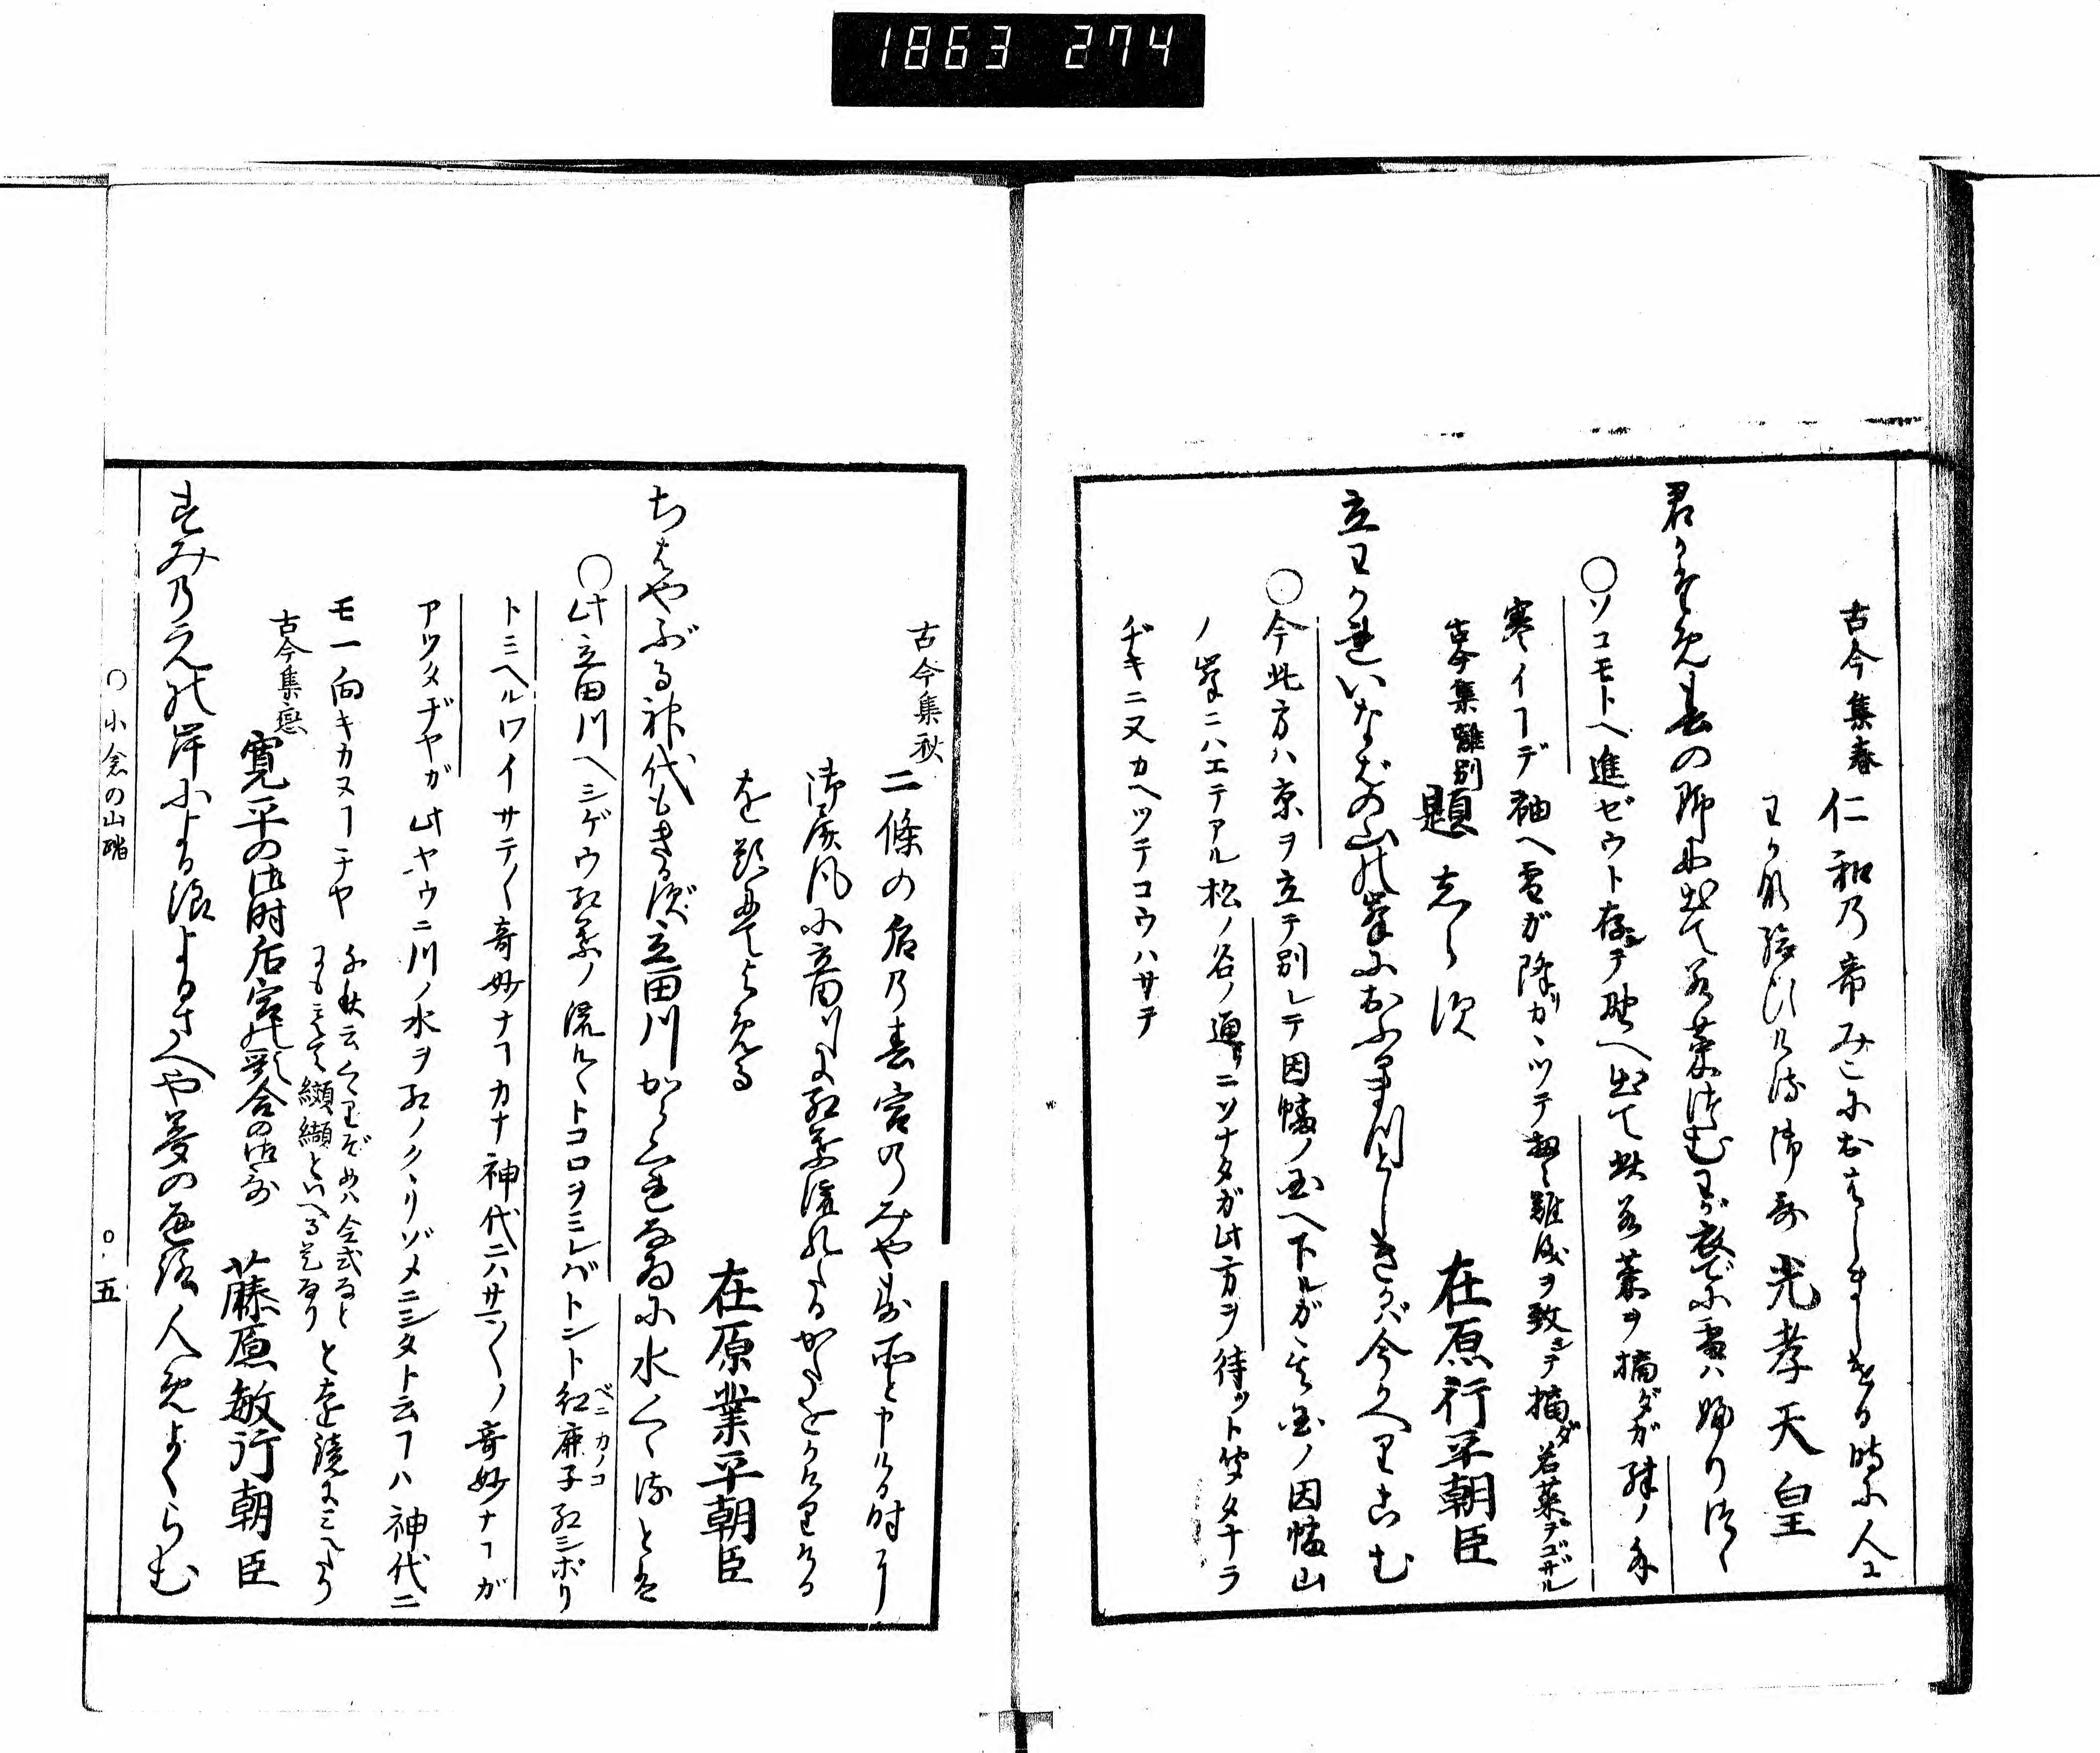 1863 274
古今集春
仁和乃帝みこにおはしましける時に人に
わか那給ひける御哥 光孝天皇
君かため春の野に出て若菜つむわが衣でに雪ハ降りつゝ
○ソコモトヘ進ゼウト存シテ野ヘ出て此若菜ヲ摘ダガ殊ノ外
寒イヿデ袖ヘ雪ガ降リカヽツテ扨々難儀ヲ致シテ摘ダ若菜デゴザル
古今集離別
題しらず 在原行平朝臣
立わかれいなばの山の峯におふる松としきかば今かへりこむ
○今此方ハ京ヲ立テ別レテ因幡ノ国ヘ下ルガ其国ノ因幡山
ノ峯ニハエテアル松ノ名ノ通リニソナタガ此方ヲ待ツト聞タナラ
ヂキニ又カヘツテコウハサテ
古今集秋
二條の后乃春宮のみやす所と申ける時に
御屏風に立田川に紅葉流れたるかたをかけりける
を題にてよめる
在原業平朝臣
ちはやぶる神代もきかず立田川からくれなゐに水くゝるとは
○此立田川ヘシゲウ紅葉ノ流ルヽトコロヲミレバトント紅鹿子紅シボリ
ベニカノコ
トミヘルワイサテ〱奇妙ナヿカナ神代ニハサマ〲ノ奇妙ナヿガ
アツタヂヤガ此ヤウニ川ノ水ヲ紅ノクヽリゾメニシタト云ヿハ神代ニ
モ一向キカヌヿヂヤ
纈纈といへる是なり
古今集恋
寛平の御時后宮の歌合の御哥 藤原敏行朝臣
すみのえの岸による浪よるさへや夢の通路人めよくらむ
○小倉の山踏
○五